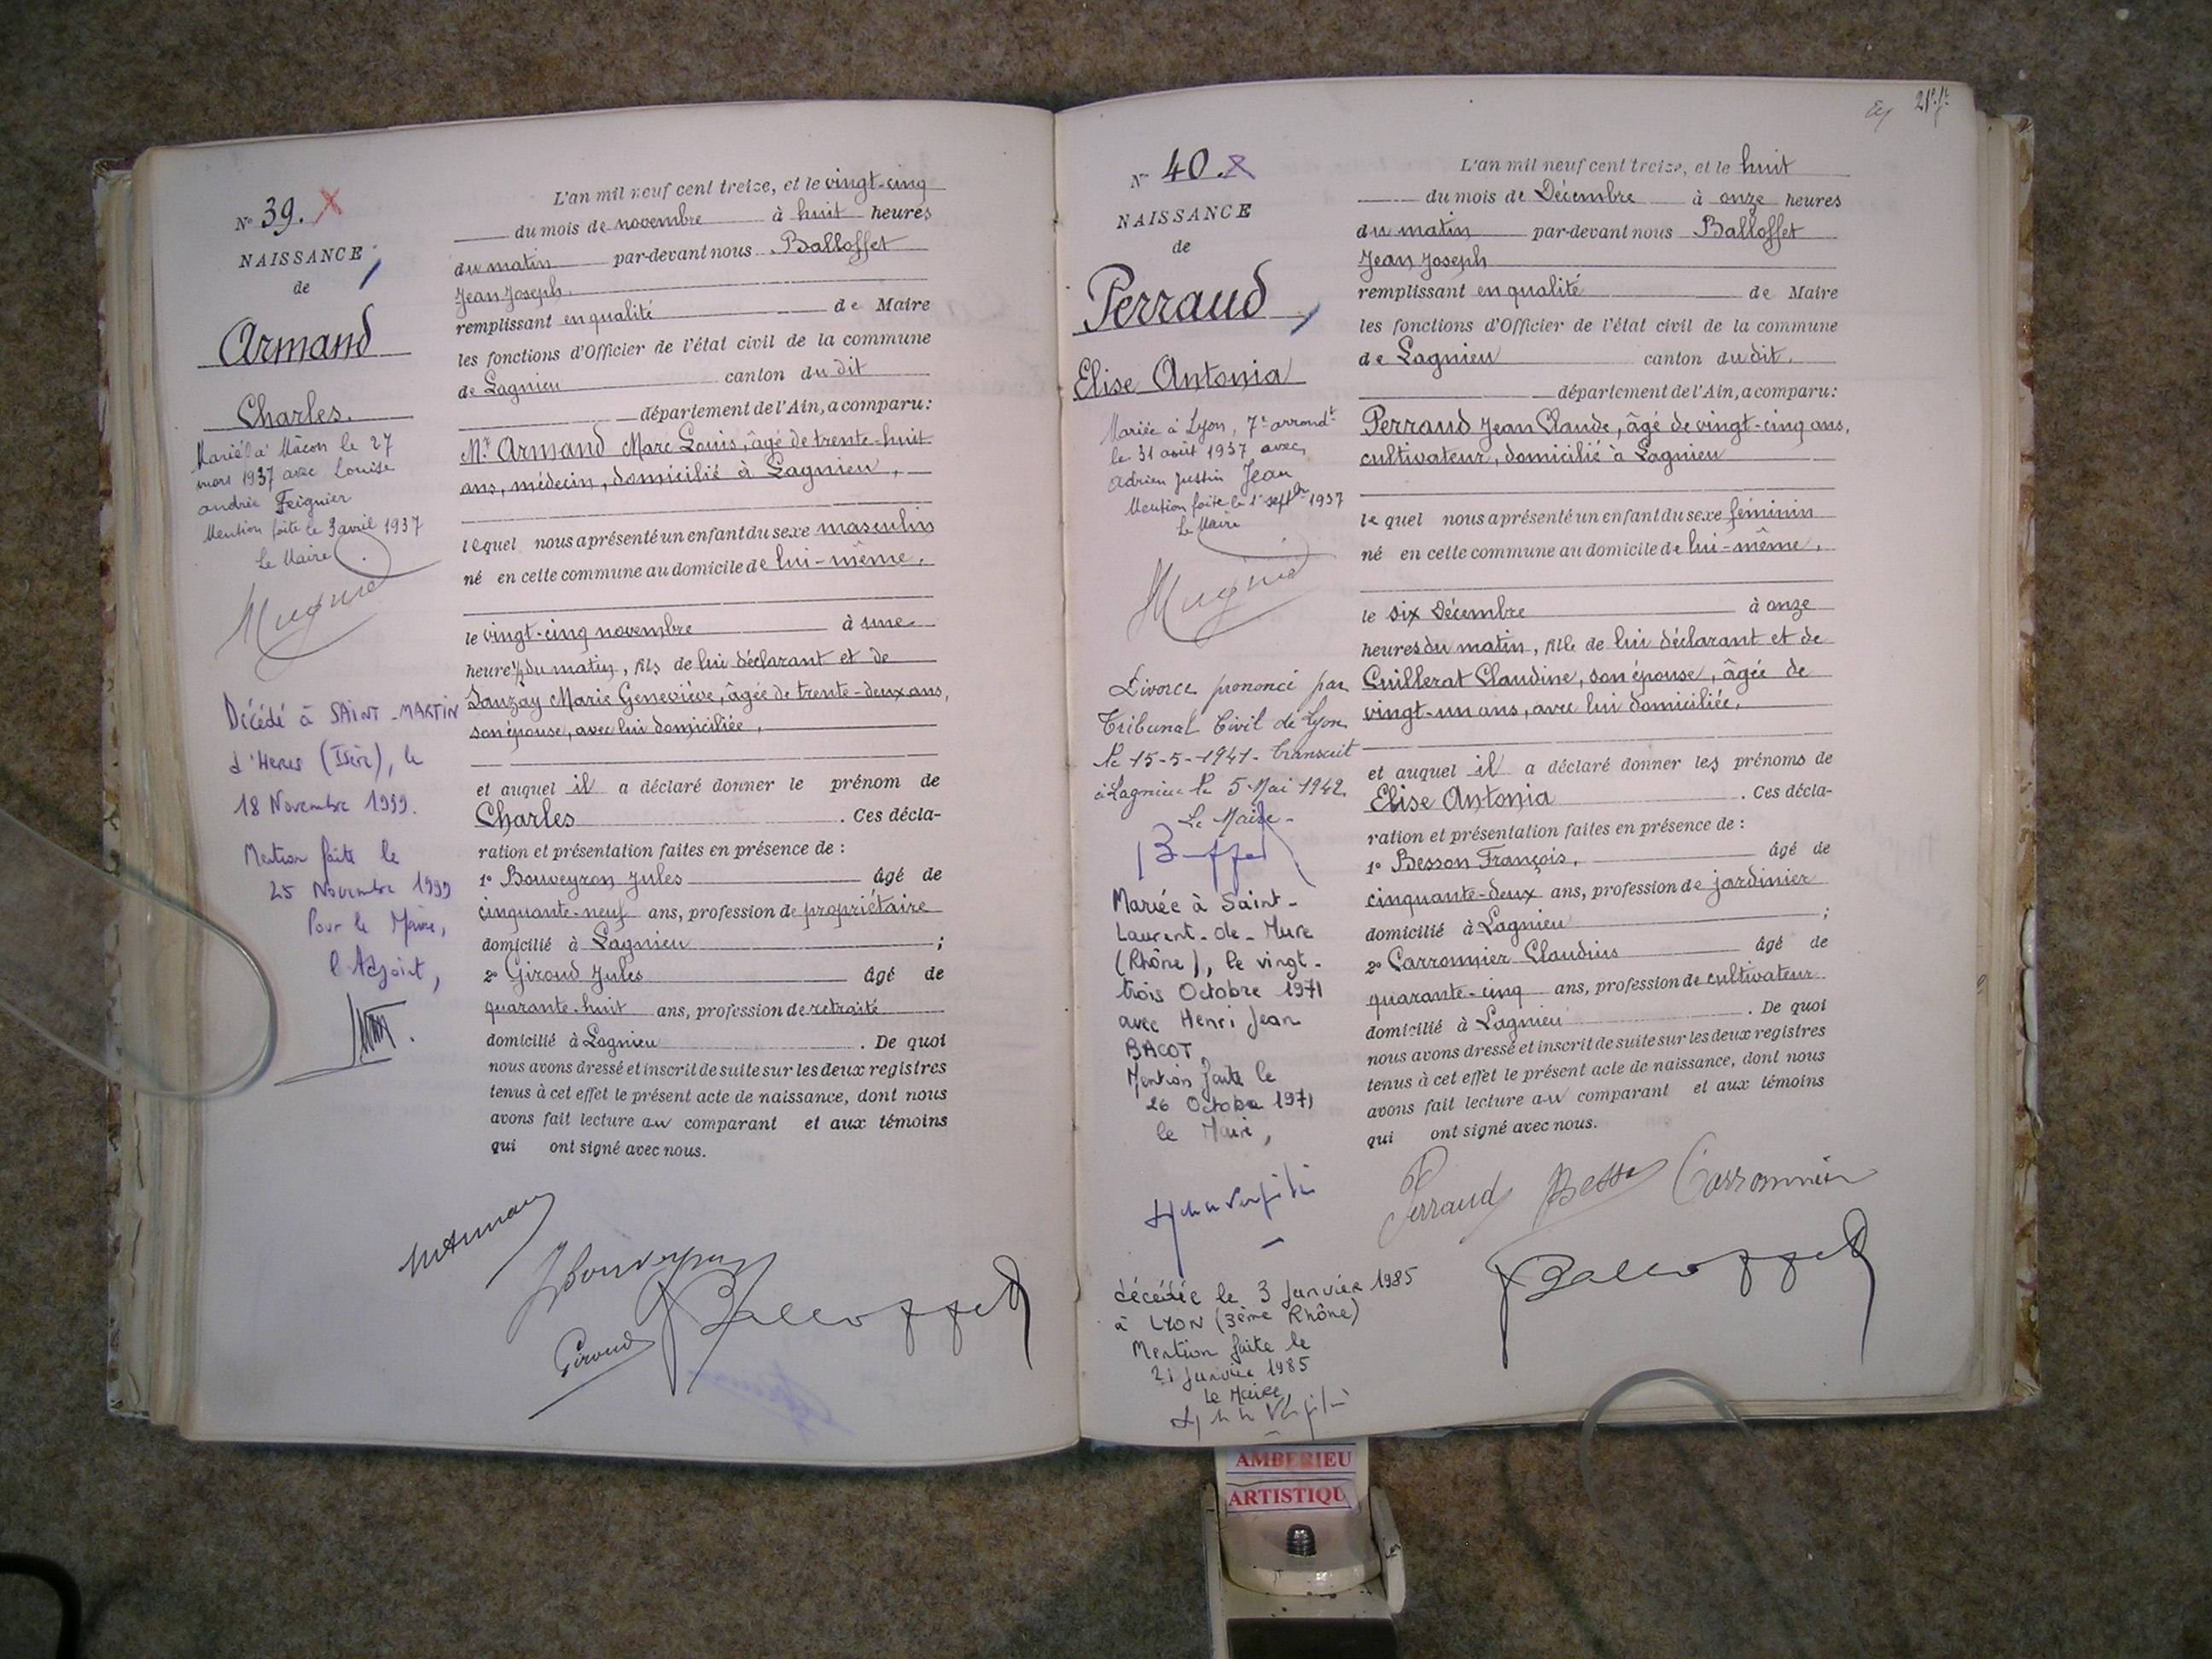 N° 39.
NAISSANCE
de
Armand
Charles.
Marié à Mâcon le 27
mars 1937 avec Louise
andrée Feignier
Mention faite le 3 avril 1937
Le Maire
Décédé à SAINT-MARTIN
d'Hères (Isère), le
18 Novembre 1999.
Mention faite le
25 Novembre 1999
Pour le Maire,
l'Adjoint,
L'an mil neuf cent treize, et le vingt-cinq
du mois de novembre à huit heures
du matin par-devant nous Balloffet
Jean Joseph.
remplissant en qualité de Maire
les fonctions d'Officier de l'état civil de la commune
de Lagnieu canton du dit
département de l'Ain, a comparu:
Mr. Armand Marc Louis, âgé de trente-huit
ans, médecin, domicilié à Lagnieu,
lequel nous a présenté un enfant du sexe masculin
né en cette commune au domicile de lui-même,
le vingt-cinq novembre à une
heure ½ du matin, fils de lui déclarant et de
Marie Geneviève, âgée de trente-deux ans,
son épouse, avec lui domiciliée,
et auquel il a déclaré donner le prénom de
Charles. Ces décla-
ration et présentation faites en présence de :
1° Bouveyron Jules âgé de
cinquante-neuf ans, profession de propriétaire
domicilié à Lagnieu ;
2° Giroud Jules âgé de
quarante-huit ans, profession de retraité
domicilié à Lagnieu. De quoi
nous avons dressé et inscrit de suite sur les deux registres
tenus à cet effet le présent acte de naissance, dont nous
avons fait lecture au comparant et aux témoins
qui ont signé avec nous.
JBouveyron
Giroud
JBalloffet
21
N° 40.
NAISSANCE
de
Perraud
Elise Antonia
Mariée à Lyon, 7e arrondt
le 31 août 1937, avec
Adrien Justin Jean
Mention faite le 1er septbre 1937
Le Maire
Divorce prononcé par
Tribunal Civil de Lyon
le 15-5-1941. transcrit
à Lagnieu le 5 Mai 1942.
Le Maire
Mariée à Saint-
Laurent-de-Mure
(Rhône), le vingt-
trois Octobre 1971
avec Henri Jean
BACOT
Mention faite le
26 Octobre 1971
le Maire,
décédée le 3 Janvier 1985
à LYON (3ème Rhône)
Mention faite le
21 Janvier 1985
Le Maire,
L'an mil neuf cent treize, et le huit
du mois de Décembre à onze heures
du matin par-devant nous Balloffet
Jean Joseph
remplissant en qualité de Maire
les fonctions d'Officier de l'état civil de la commune
de Lagnieu canton du dit.
département de l'Ain, a comparu:
Perraud Jean Claude, âgé de vingt-cinq ans,
cultivateur, domicilié à Lagnieu
lequel nous a présenté un enfant du sexe féminin
né en cette commune au domicile de lui-même,
le six Décembre à onze
heures du matin, fille de lui déclarant et de
Cuillerat Claudine, son épouse, âgée de
vingt-un ans, avec lui domiciliée,
et auquel il a déclaré donner les prénoms de
Elise Antonia. Ces décla-
ration et présentation faites en présence de :
1° Besson François, âgé de
cinquante-deux ans, profession de jardinier
domicilié à Lagnieu ;
2° Carronnier Claudius âgé de
quarante-cinq ans, profession de cultivateur
domicilié à Lagnieu. De quoi
nous avons dressé et inscrit de suite sur les deux registres
tenus à cet effet le présent acte de naissance, dont nous
avons fait lecture au comparant et aux témoins
qui ont signé avec nous.
Perraud Besson Carronnier
JBalloffet
AMBERIEU
ARTISTIQU